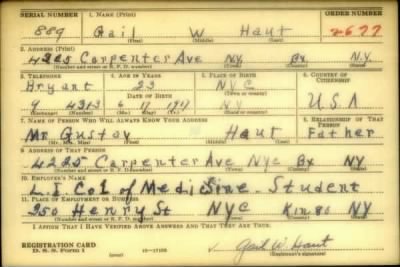 SERIAL NUMBER 1. NAME (Print) ORDER NUMBER
889 Gail W Haut 2677
2. ADDRESS (Print)
4225 Carpenter Ave NY. Bx N.Y.
(Number and street or R. F. D. number) (Town) (County) (State)
3. TELEPHONE 4. AGE IN YEARS 5. PLACE OF BIRTH 6. COUNTRY OF CITIZENSHIP
Bryant 23 NYC
DATE OF BIRTH (Town or county)
9 4313 6 17 1917 NY USA
(Exchange) (No.) (Mo.) (Day) (Yr.) (State or country)
7. NAME OF PERSON WHO WILL ALWAYS KNOW YOUR ADDRESS 8. RELATIONSHIP OF THAT PERSON
Mr Gustav Haut Father
(Mr., Mrs., Miss) (First) (Middle) (Last)
9. ADDRESS OF THAT PERSON
4225 Carpenter Ave NYC Bx NY
(Number and street or R. F. D. number) (Town) (County) (State)
10. EMPLOYER'S NAME
L.I Col of Medicine - Student
11. PLACE OF EMPLOYMENT OR BUSINESS
350 Henry St NYC Kings NY
(Number and street or R. F. D. number) (Town) (County) (State)
I AFFIRM THAT I HAVE VERIFIED ABOVE ANSWERS AND THAT THEY ARE TRUE.
REGISTRATION CARD
D. S. S. Form 1 Gail W Haut
(Registrant's signature)